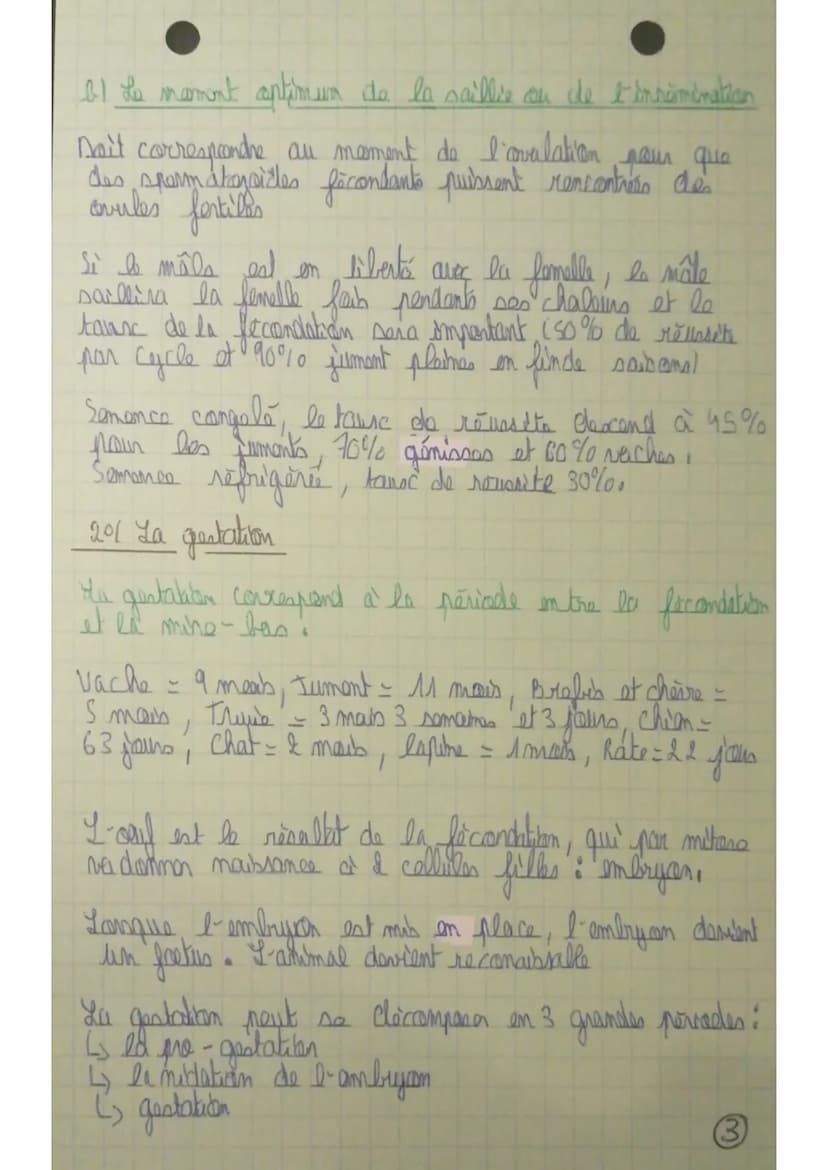 B) Le moment optimum de la saillie ou de l'insémination
Doit correspondre au moment de l'ovulation pour que
des spermatozoïdes fécondants puissent rencontrés des
ovules fertiles
Si le mâle est en liberté avec la femelle, le mâle
saillira la femelle pendants ses chaleurs et le
taux de la fécondation sera important (50% de réussite
par cycle et 90% jument pleines en fin de saison)
Semence congelé, le taux de réussite descend à 45%
pour les juments, 70% génisses et 60% vaches.
Semence réfrigérée, taux de réussite 30%.
20/ La gestation
La gestation correspond à la période entre la fécondation
et la mise-bas.
Vache = 9 mois, Jument = 11 mois, Brebis et chèvre =
5 mois, Truie = 3 mois 3 semaines et 3 jours, Chien =
63 jours, Chat = 2 mois, lapine = 1 mois, Rate = 22 jours
L'œuf est le résultat de la fécondation, qui par mitose
va donner naissance à 2 cellules filles : embryon.
Lorsque l'embryon est mis en place, l'embryon devient
un foetus. L'animal devient reconaissable
La gestation peut se décomposer en 3 grandes périodes :
↳ la pro-gestation
↳ la nidation de l'embryon
↳ gestation
3